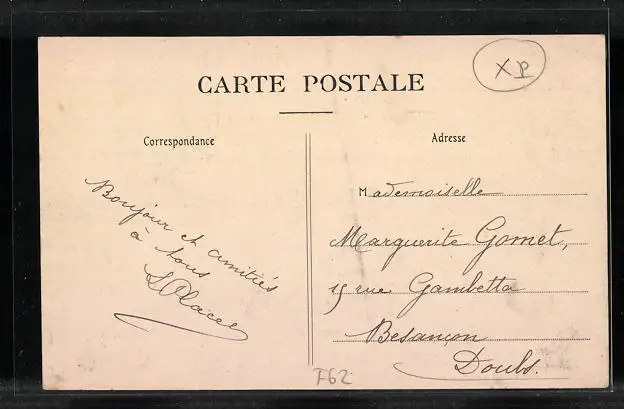 XP
CARTE POSTALE
Correspondance
Adresse
Bonjour et amitiés
à tous
Mademoiselle
Marguerite Gomet,
15 rue Gambetta
Besançon
Doubs.
F62